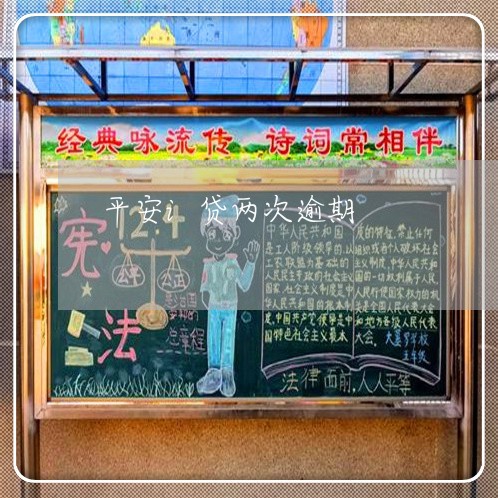 经典咏流传 诗词常相伴
平安i贷两次逾期
12.4
宪法
公平 公正
总章程
中华人民共和国
是工人阶级领导的,以
工农联盟为基础的
人民民主专政的社会主义
国家,社会主义制度是中
华人民共和国的根本制
度,中国共产党领导是中
国特色社会主义最本
质的特征,禁止任何
组织或者个人破坏社会
主义制度,中华人民共和
国的一切权利属于人民,
人民行使国家权力的机
关是全国人民代表大会
和地方各级人民代表
大会。
五年级
法律面前,人人平等